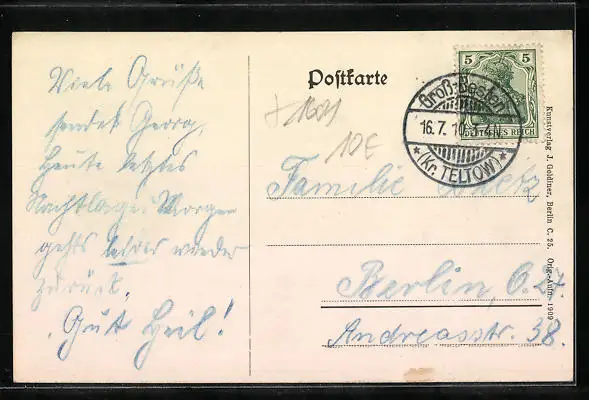 Viele Grüße
sendet Georg,
Heute letztes
Nachtlager. Morgen
gehts wieder
zurück.
Gut Heil!
Postkarte
+1621
10E
5 5
DEUTSCHES REICH
Groß-Besten
16.7.10
*(Kr. TELTOW)*
Familie
Berlin, O. 27.
Andreasstr. 38.
Kunstverlag J. Goldiner, Berlin C. 25. Orig.-Aufn. 1909